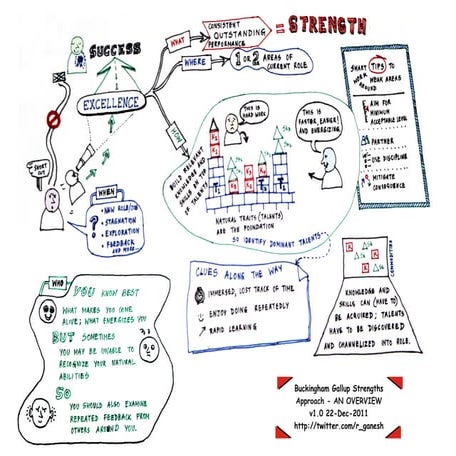 SUCCESS
WHAT
CONSISTENT
OUTSTANDING
PERFORMANCE
= STRENGTH
WHERE
1 OR 2 AREAS OF
CURRENT ROLE
EXCELLENCE
HOW
SHORT
CUT
WHEN
• NEW ROLE/JOB
• STAGNATION
• EXPLORATION
• FEEDBACK
AND MORE...
?
BUILD RELEVANT
KNOWLEDGE AND
SKILLS ON TOP
OF TALENTS
THIS IS
HARD WORK
THIS IS
FASTER, EASIER!
AND ENERGIZING.
NATURAL TRAITS (TALENTS)
ARE THE FOUNDATION
SO IDENTIFY DOMINANT TALENTS
SMART TIPS TO
WORK WEAK AREAS
AROUND
AIM FOR
MINIMUM
ACCEPTABLE LEVEL
PARTNER
USE DISCIPLINE
MITIGATE
CONSEQUENCE
CLUES ALONG THE WAY
IMMERSED, LOST TRACK OF TIME
ENJOY DOING REPEATEDLY
RAPID LEARNING
KNOWLEDGE AND
SKILLS CAN (HAVE TO)
BE ACQUIRED; TALENTS
HAVE TO BE DISCOVERED
AND CHANNELIZED INTO ROLE.
WHO
YOU KNOW BEST
WHAT MAKES YOU COME
ALIVE; WHAT ENERGIZES YOU
BUT SOMETIMES
YOU MAY BE UNABLE TO
RECOGNIZE YOUR NATURAL
ABILITIES
SO
YOU SHOULD ALSO EXAMINE
REPEATED FEEDBACK FROM
OTHERS AROUND YOU.
Buckingham Gallup Strengths
Approach - AN OVERVIEW
v1.0 22-Dec-2011
http://twitter.com/r_ganesh